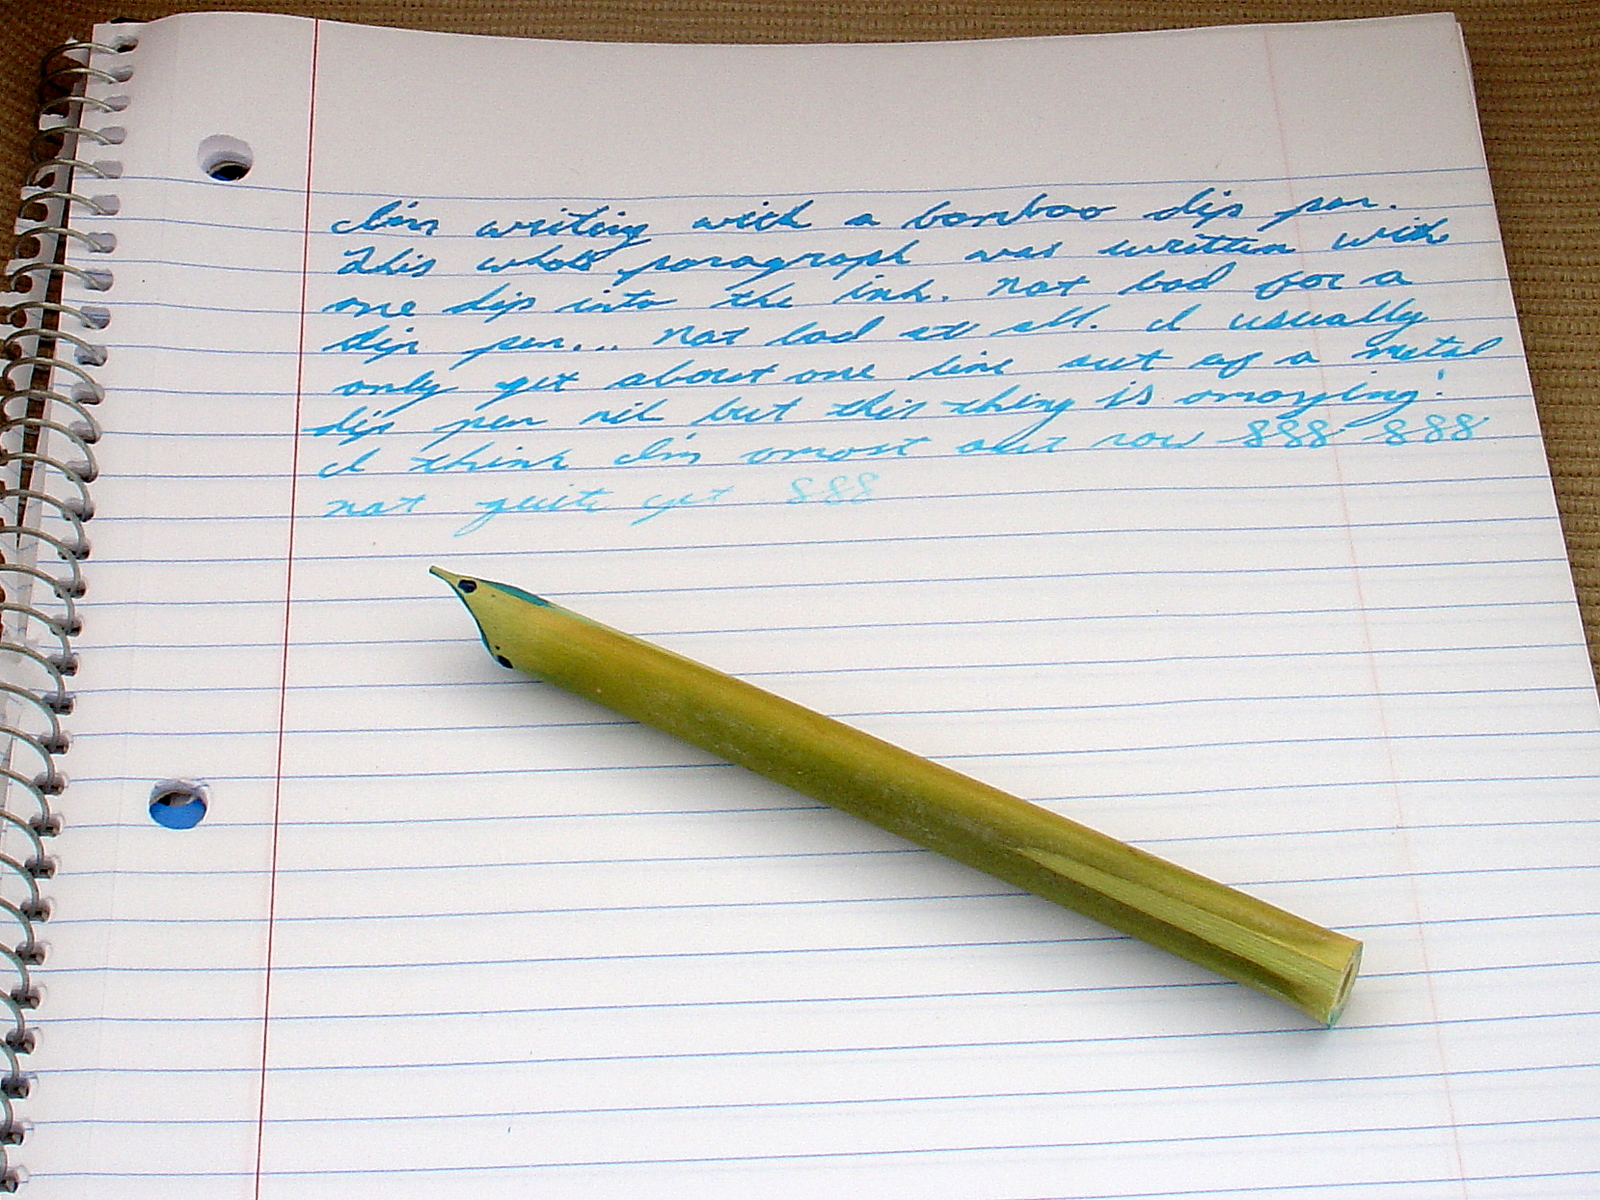 I'm writing with a bamboo dip pen.
This whole paragraph was written with
one dip into the ink. Not bad for a
dip pen... Not bad at all. I usually
only get about one line out of a metal
dip pen nib but this thing is amazing!
I think I'm amost out now 888 888
not quite yet 888